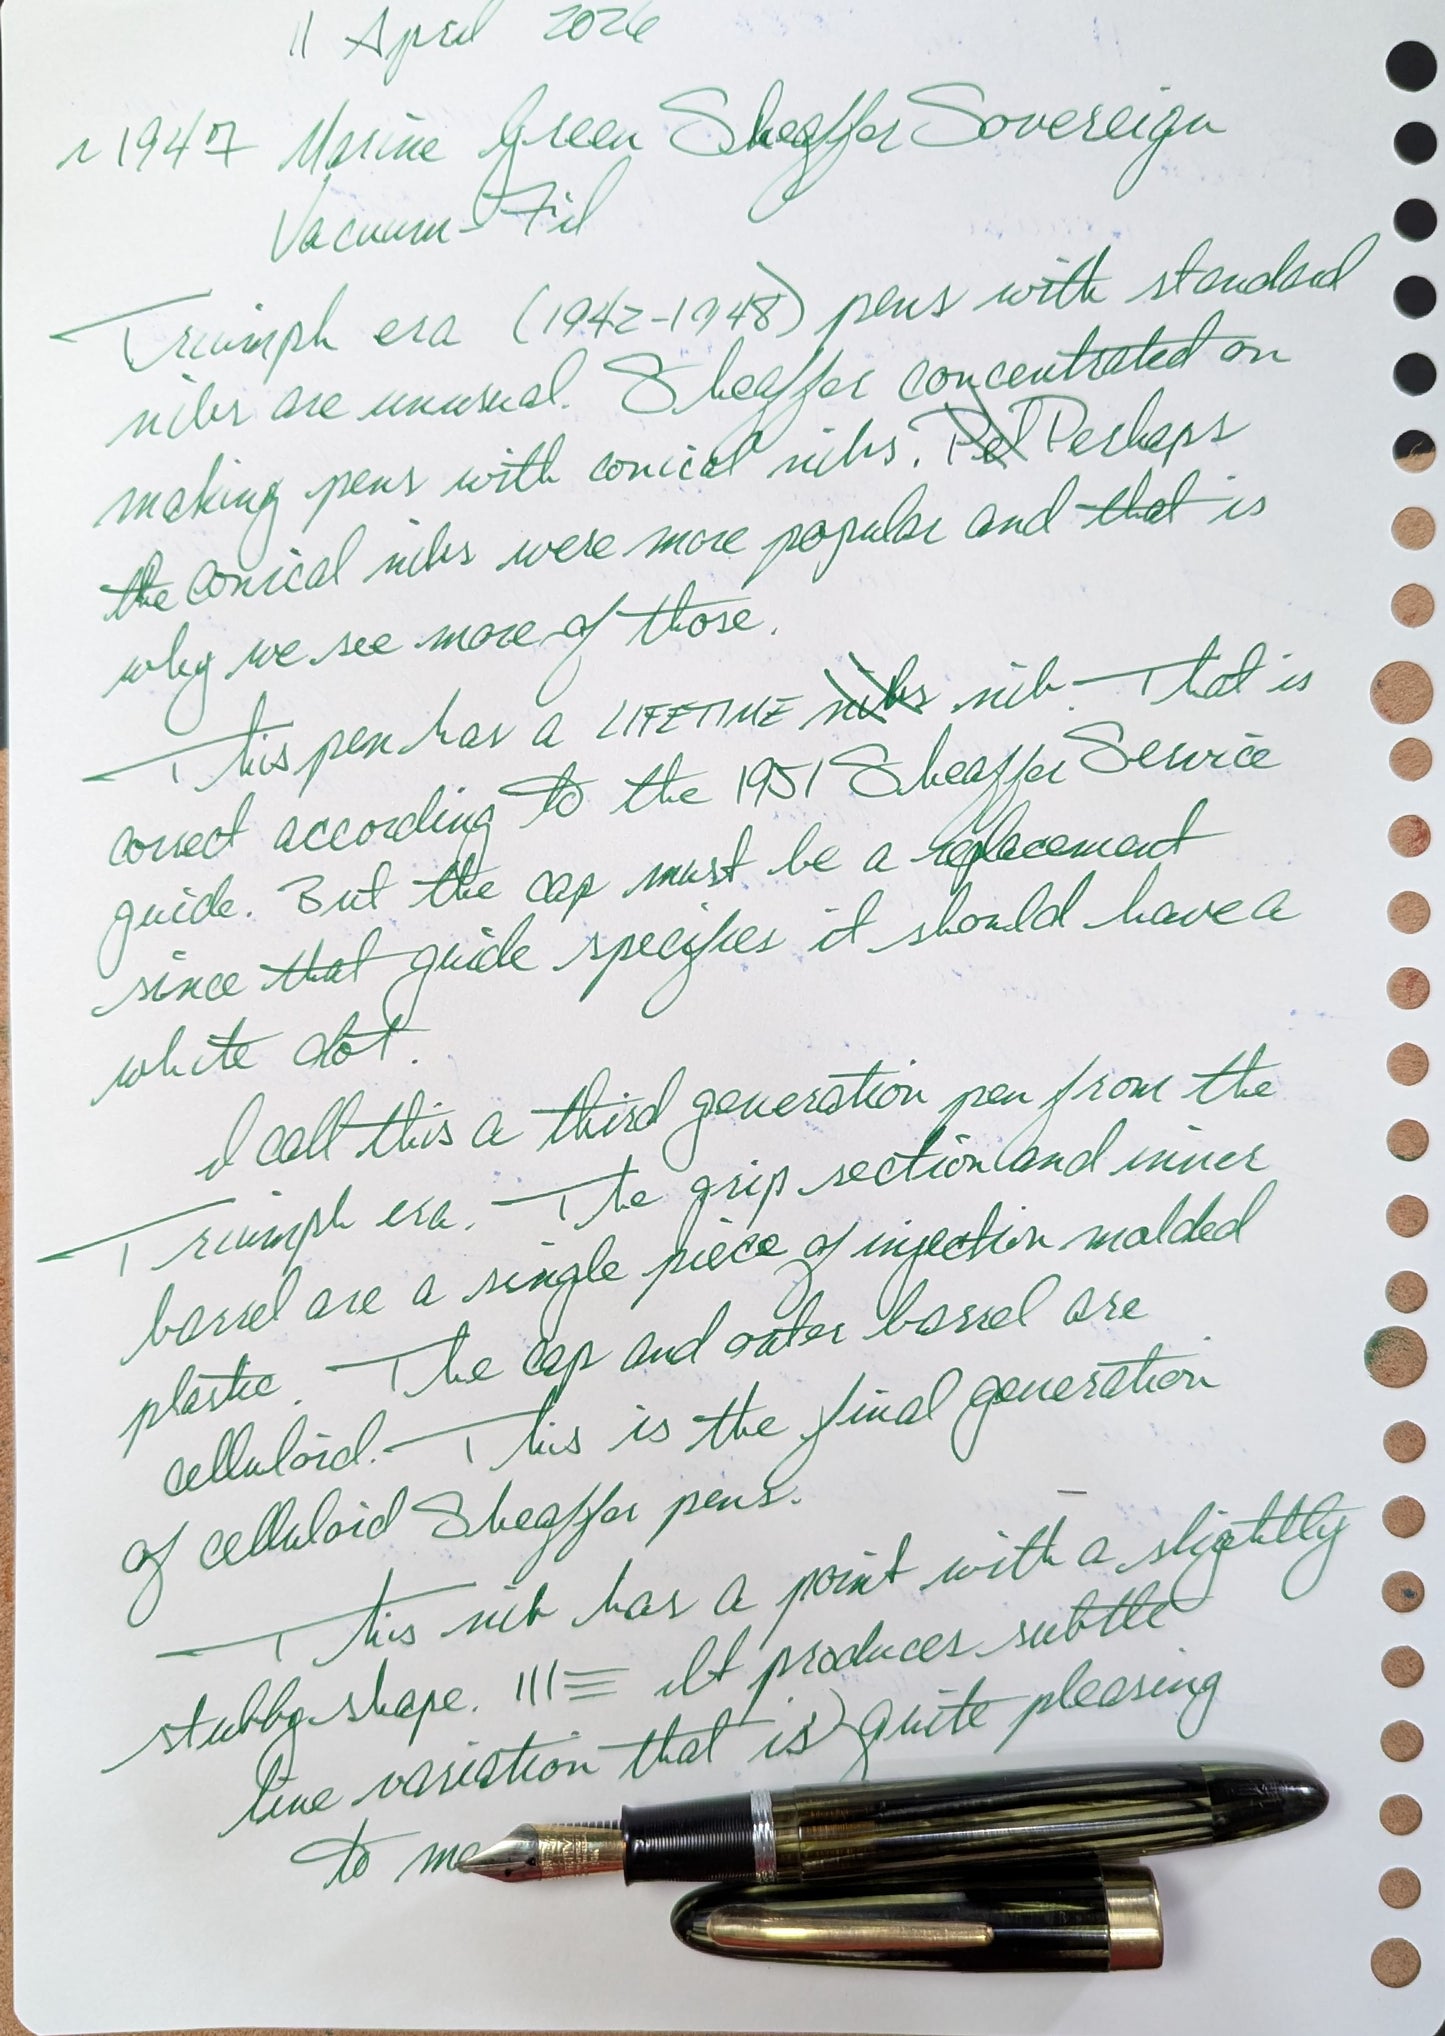 11 April 2026
~1947 Marine Green Sheaffer Sovereign
Vacuum-Fil
Triumph era (1942-1948) pens with standard
nibs are unusual. Sheaffer concentrated on
making pens with conical nibs. Pe Perhaps
the conical nibs were more popular and that is
why we see more of those.
This pen has a LIFETIME nibs nib. That is
correct according to the 1951 Sheaffer Service
guide. But the cap must be a replacement
since that guide specifies it should have a
white dot.
I call this a third generation pen from the
Triumph era. The grip section and inner
barrel are a single piece of injection molded
plastic. The cap and outer barrel are
celluloid. This is the final generation
of celluloid Sheaffer pens.
This nib has a point with a slightly
stubby shape. |||≡ It produces subtle
line variation that is quite pleasing
to me